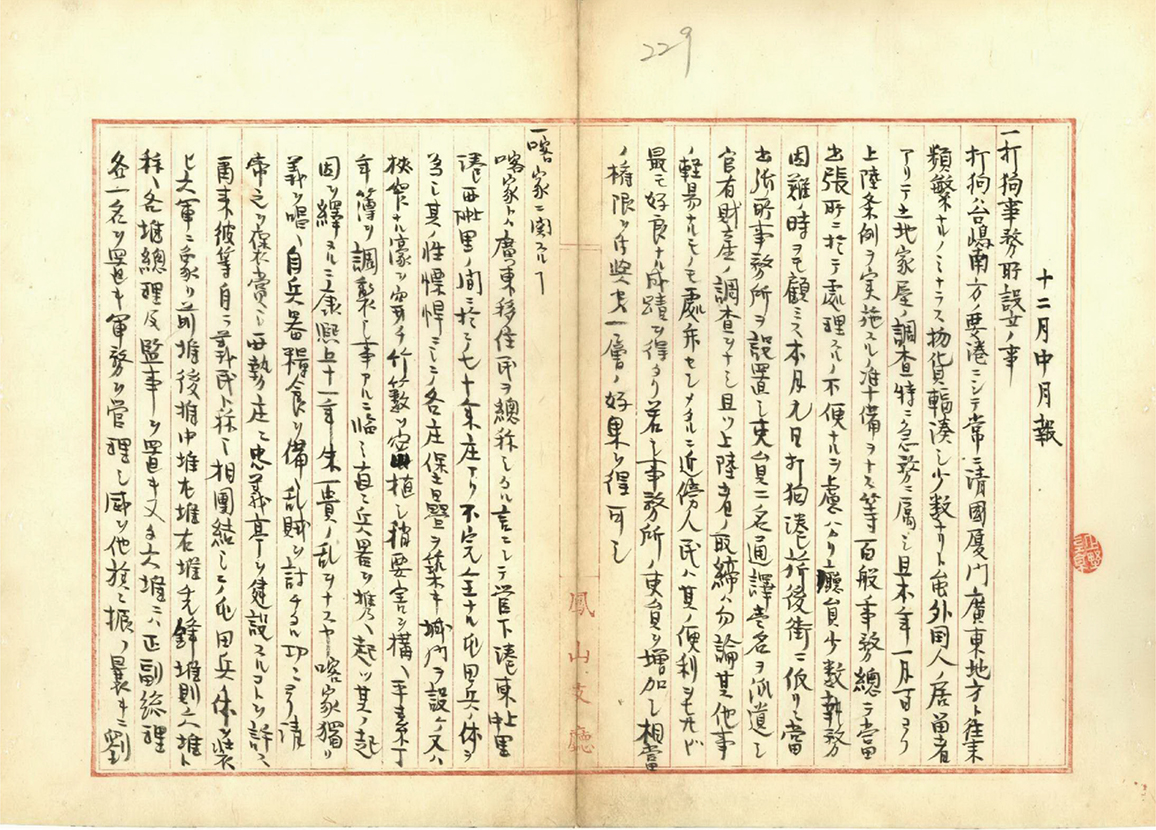 229
十二月中月報
一打狗事務所設立ノ事
打狗ハ台嶋南方ノ要港ニシテ常ニ清國厦門廣東地方ト往来
頻繁ナルノミナラス物貨輻湊シ少数ナリト雖外国人ノ居留者
アリテ土地家屋ノ調査特ニ急務ニ属シ且本年一月一日ヨリ
上陸条例ヲ実施スル準備ヲナス等百般ノ事務總テ當
出張所ニ於テ處理スルノ不便ナルヲ慮ハカリ廳員少数執務
困難時ヲモ顧ミス本月九日打狗港前後街ニ仮リニ當
出張所事務所ヲ設置シ吏員二名通譯壱名ヲ派遣シ
官有財産ノ調査ヲナシ且ツ上陸者ノ取締ハ勿論其他事
ノ軽易ナルモノモ處弁セシメタルニ近傍人民ハ其ノ便利ヲ
最モ好良ナル成蹟ヲ得タリ若シ事務所ノ吏員ヲ増加シ相當
ノ権限ヲ付與セハ一層ノ好果ヲ得可シ
一喀家ニ関スルヿ
喀家トハ廣東移住民ヲ總称シタル言ニシテ管下港東上中里
港西上中里ノ間ニ於テ七十余庄アリ不完全ナル屯田兵ノ体ヲ
為シ其ノ性慓悍ニシテ各庄保壘ヲ築キ城門ヲ設ケ又ハ
狹窄ナル濠ヲ穿チ竹藪ヲ密植シ稍要害ヲ構ヘ平素丁
年簿ヲ調製シ事アルニ臨ミ直ニ兵器ヲ携ヘ起ツ其ノ起
因ヲ繹スルニ康熙五十一年朱一貴ノ乱ヲナスヤ喀家獨リ
義ヲ唱ヘ自兵器糧食ヲ備ヘ乱賊ヲ討チタル功ニヨリ清
帝之ヲ褒賞シ西勢庄ニ忠義亭ヲ建設スルコトヲ許ス
爾来彼等自ラ義民ト称シ相團結シテ屯田兵ノ体裝
ヒ大軍ニ象リ前堆後堆中堆左堆右堆先鋒堆則六堆ト
称ヘ各堆總理及監事ヲ置キ又六堆ニハ正副総理
各一名ヲ置キ軍務ヲ管理シ威ヲ他族ニ振フ曩キニ劉
鳳山支廳